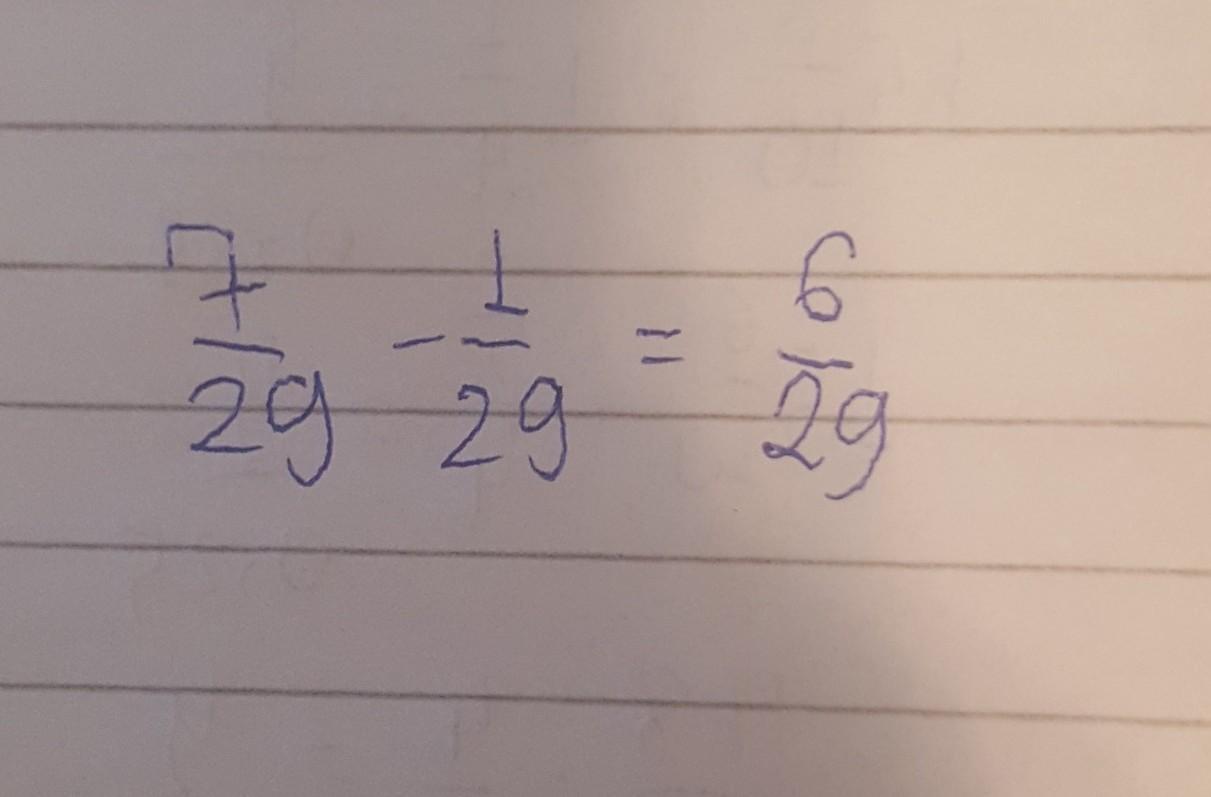 7/29 - 1/29 = 6/29